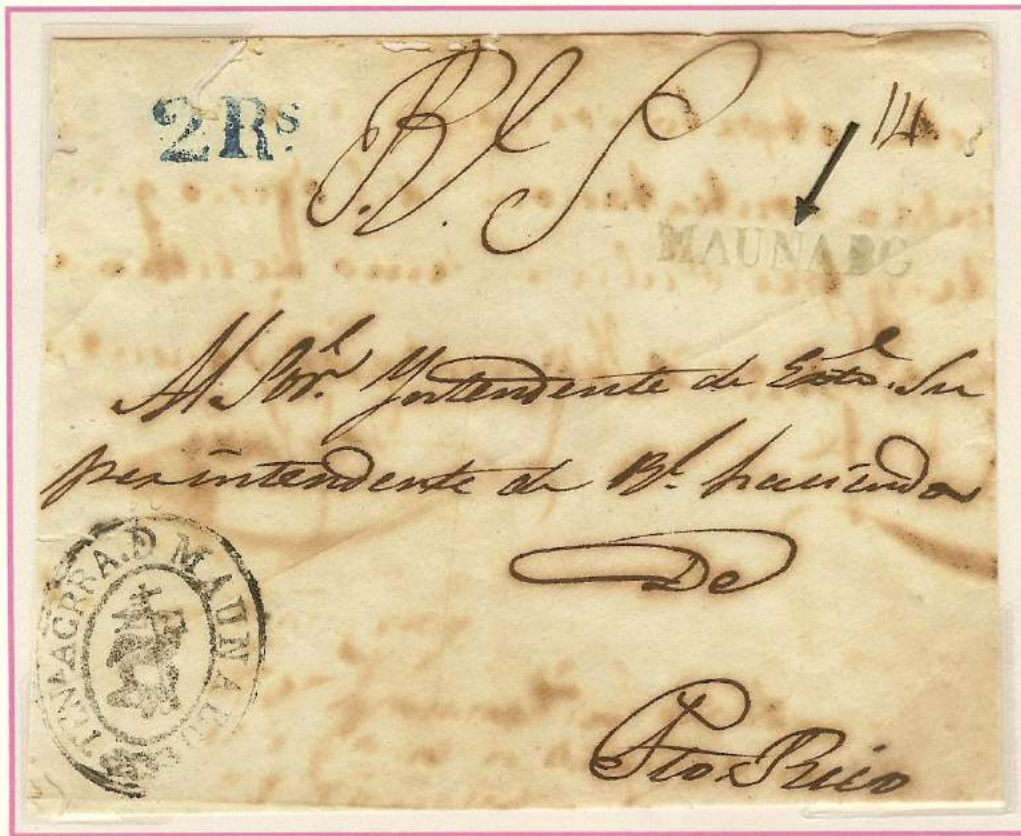 2Rs.
R.l S.
114
MAUNABO
Al Sor. Yntendente de Exto. Su
perintendente de Rl. hacienda
De
Pto. Rico
TENA. GRRA. D MAUNABO